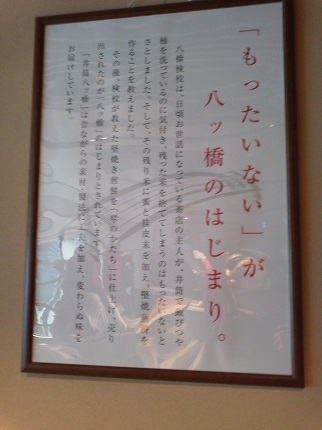 「もったいない」が
八ッ橋のはじまり。
八橋検校は、日頃お世話になっている茶店の主人が、井筒で飯びつや
桶を洗っているのに気付き、残った米を捨ててしまうのはもったいないと
さとしました。そして、その残り米に蜜と桂皮末を加え、堅焼煎餅を
作ることを教えました。
その後、検校が教えた堅焼き煎餅を「琴のかたち」に仕上げ、売り
出されたのが「八ッ橋」のはじまりとされています。
「井筒八ッ橋」は昔ながらの素材・製法に工夫を加え、変わらぬ味を
お届けしています。